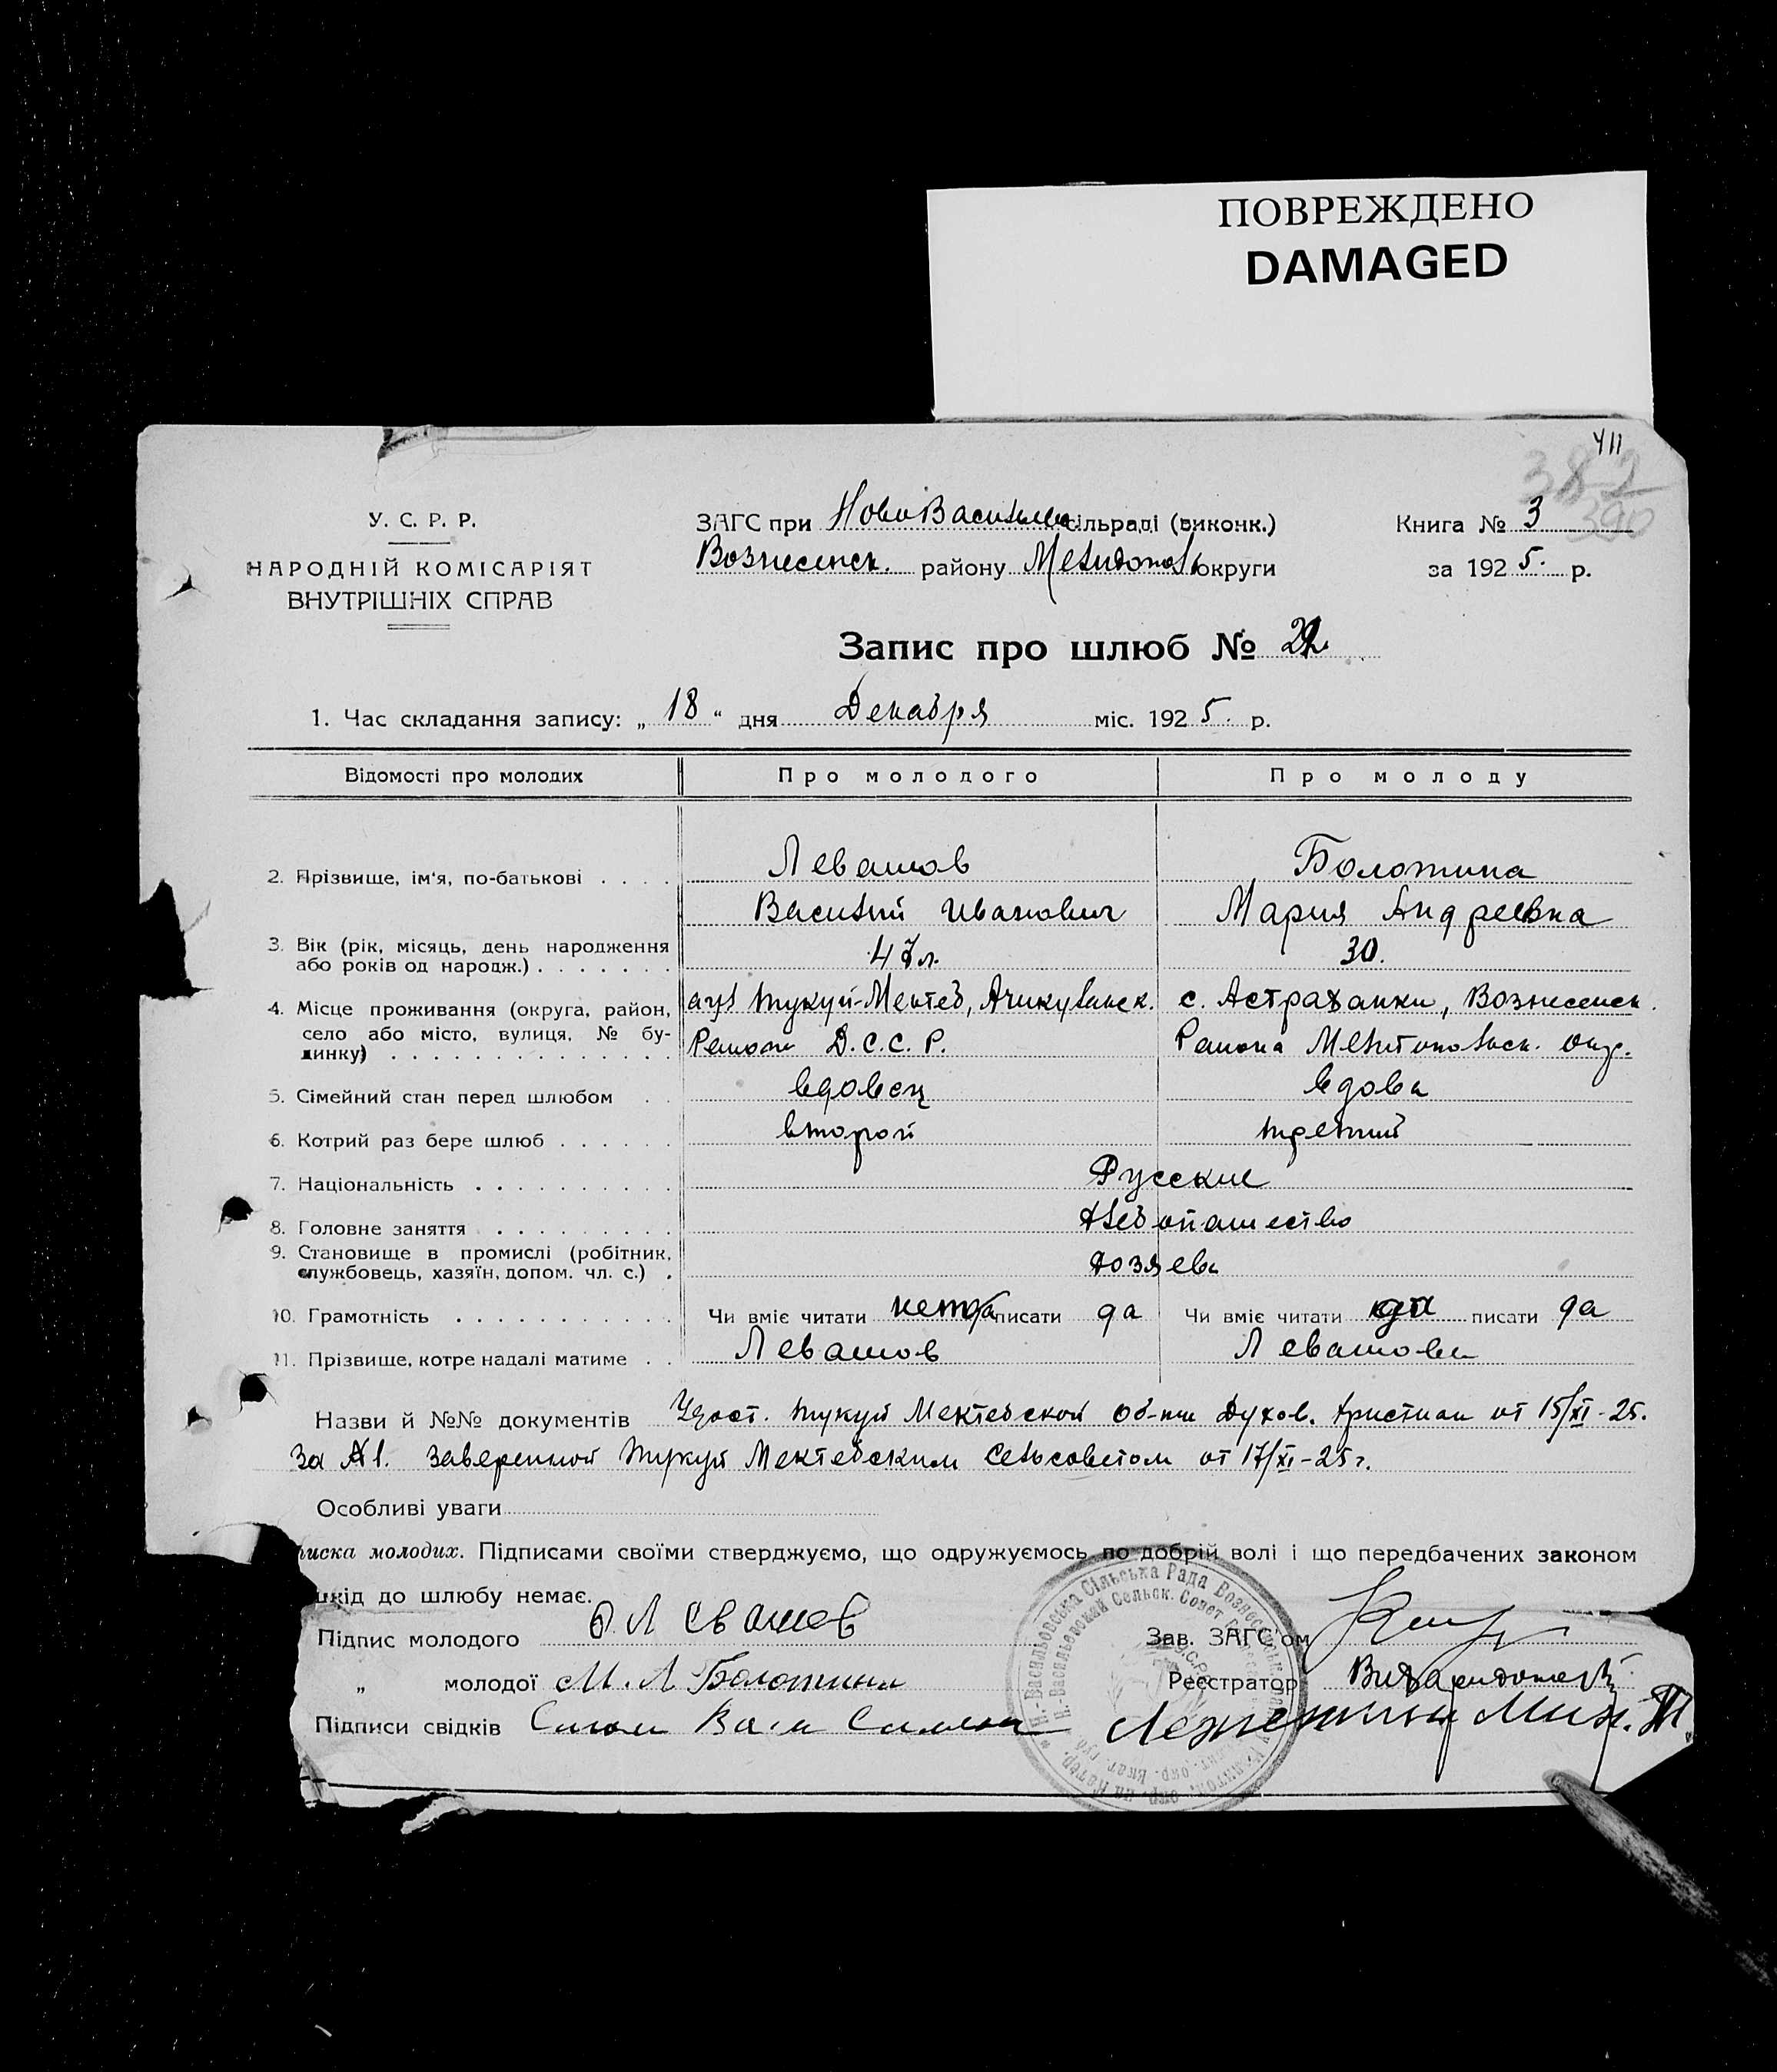 ПОВРЕЖДЕНО
DAMAGED
411
382
390
У. С. Р. Р.
НАРОДНІЙ КОМІСАРІЯТ
ВНУТРІШНІХ СПРАВ
ЗАГС при НовоВасильев сільраді (виконк.)
Вознесенск. району Мелитополь округи
Книга № 3
за 1925. р.
Запис про шлюб № 22
1. Час складання запису: „ 18 “ дня Декабря міс. 1925. р.
Відомості про молодих Про молодого Про молоду
2. Прізвище, ім'я, по-батькові . . . . Левашов Болотина
Василий Иванович Мария Андреевна
3. Вік (рік, місяць, день народження або років од народж.) . . . . . . . 47л. 30.
4. Місце проживання (округа, район, село або місто, вулиця, № будинку) . . . аул Тукуй-Мектеб, Ачикулакск. с. Астраханки, Вознесенск.
Района Д.С.С.Р. Района Мелитопольск. окр.
5. Сімейний стан перед шлюбом . . вдовец вдова
6. Котрий раз бере шлюб . . . . . . второй третий
7. Національність . . . . . . . . . . Русские
8. Головне заняття . . . . . . . . . Хлебопашество
9. Становище в промислі (робітник, службовець, хазяїн, допом. чл. с.) . хозяева
10. Грамотність . . . . . . . . . . . Чи вміє читати да писати да Чи вміє читати да писати да
11. Прізвище, котре надалі матиме . . Левашов Левашова
Назви й №№ документів Удост. Тукуй Мектебской об-ни Духов. Христиан от 15/XI-25.
за №1. заверенной Тукуй Мектебским Сельсоветом от 17/XI-25г.
Особливі уваги
писка молодих. Підписами своїми стверджуємо, що одружуємось по добрій волі і що передбачених законом
шкід до шлюбу немає.
Підпис молодого Левашов
Зав. ЗАГС'ом
„ молодої М. Л. Болотина
Реєстратор
Підписи свідків
Н.-Васильовська Сільська Рада
Н.-Васильевский Сельск. Совет
У.С.Р.Р.